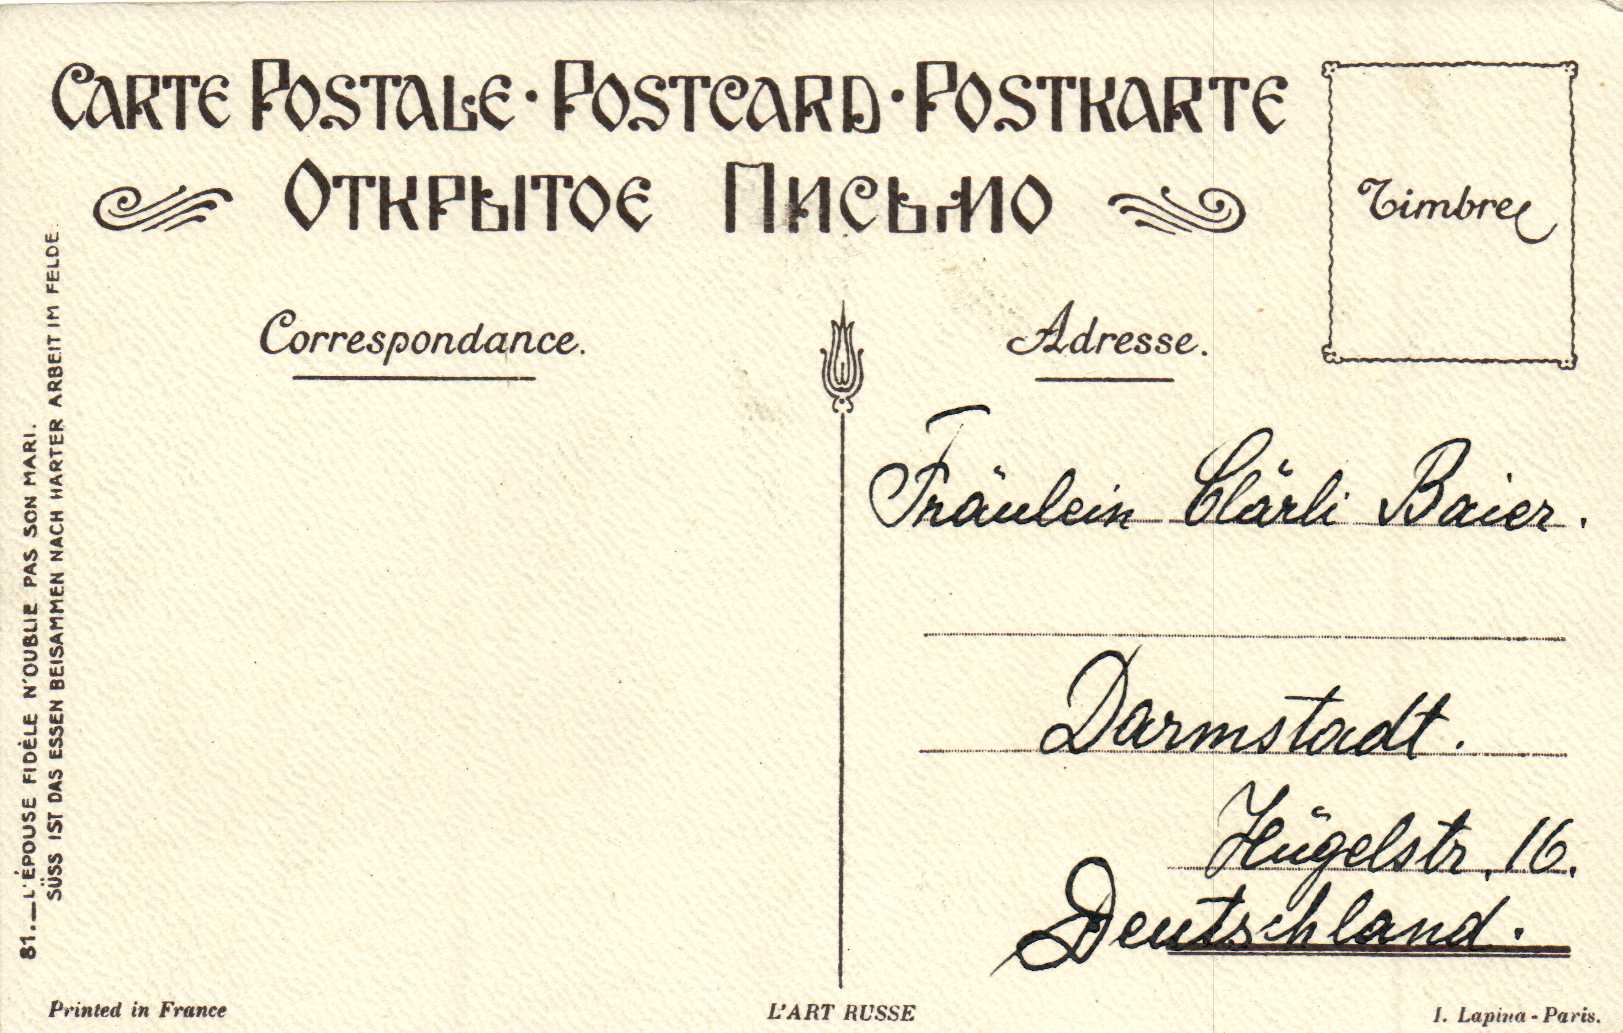 CARTE POSTALE · POSTCARD · POSTKARTE
ОТКРЫТОЕ ПИСЬМО
Timbre
Correspondance.
Adresse.
81.—L'ÉPOUSE FIDÈLE N'OUBLIE PAS SON MARI.
SÜSS IST DAS ESSEN BEISAMMEN NACH HARTER ARBEIT IM FELDE.
Fräulein Clärli Baier.
Darmstadt.
Hügelstr. 16.
Deutschland.
Printed in France
L'ART RUSSE
I. Lapina - Paris.